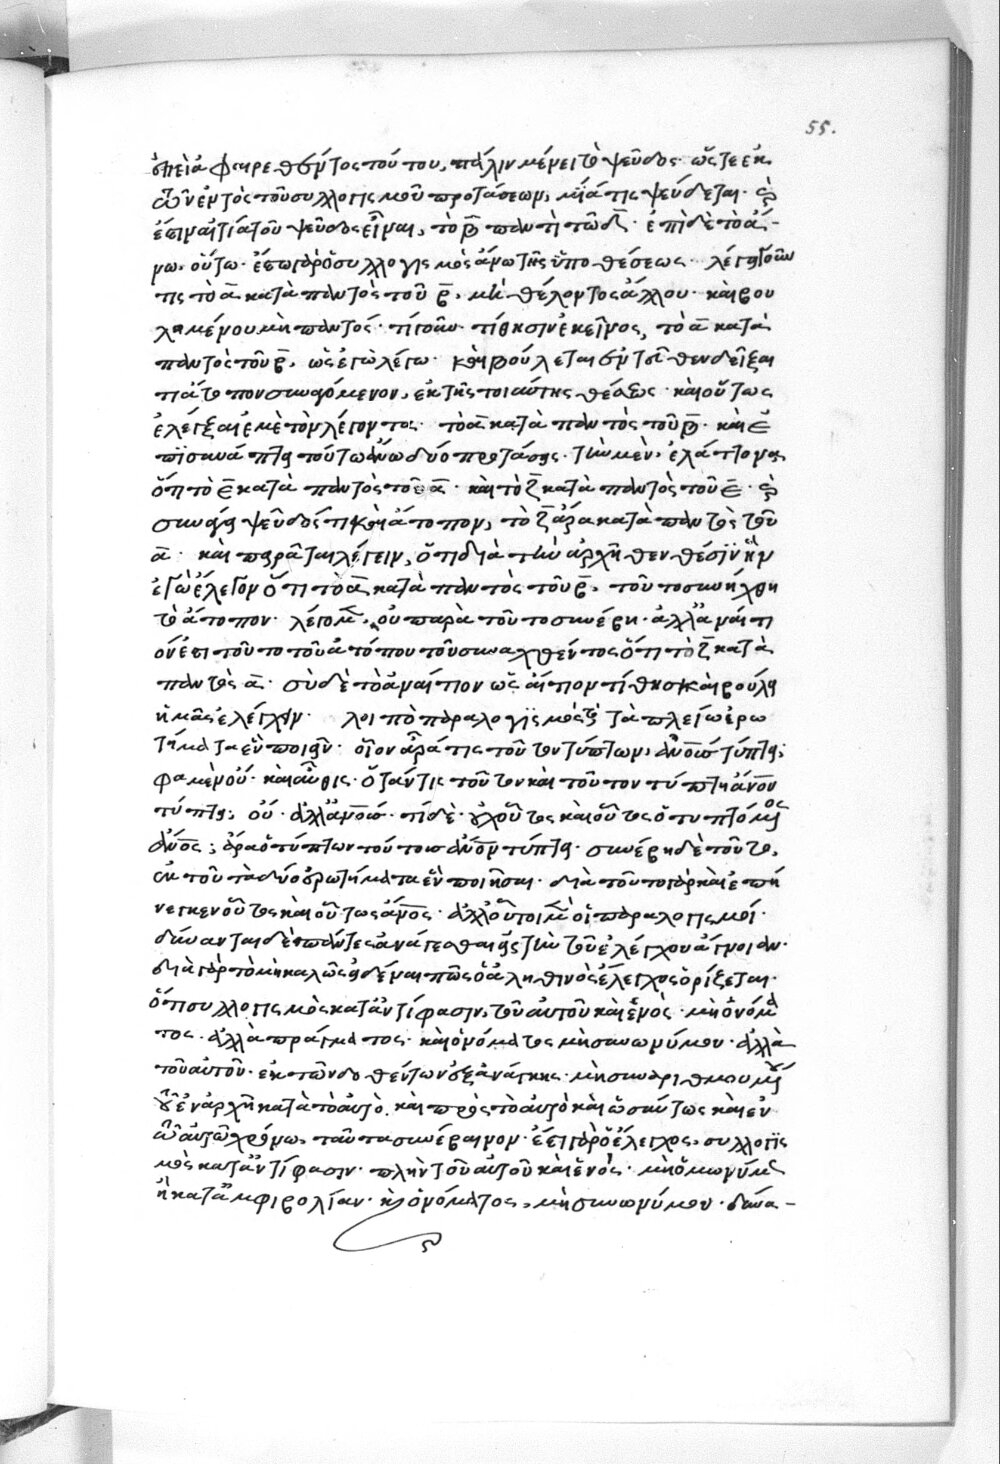 55.
ἐπεὶ ἀφαιρεθέντος τούτου, πάλιν μένει τὸ ψεῦδος· ὥστε ἐκ
τῶν ἐντὸς τοῦ συλλογισμοῦ προτάσεων, μία τις ψεύδεται· καὶ
ἔστιν αἰτία τοῦ ψεῦδος εἶναι, τὸ β̅ παντὶ τῷ δ̅· ἐπὶ δὲ τὸ ἄ-
νω, οὕτω· ἔστω γὰρ ὁ συλλογισμὸς ἄνω τῆς ὑποθέσεως· λέγει γοῦν
τις τὸ α̅ κατὰ παντὸς τοῦ β̅, μὴ θέλοντος ἄλλου· καὶ βου
λομένου μὴ παντός· τί γοῦν τίθησιν ἐκεῖνος, τὸ α̅ κατὰ
παντὸς τοῦ β̅, ὡς ἐγὼ λέγω· καὶ βούλεται ἐντεῦθεν δεῖξαι
τι ἄτοπον συναγόμενον, ἐκ τῆς τοιαύτης θέσεως· καὶ οὕτως
ἐλέγξαι ἐμὲ τὸν λέγοντα· τὸ α̅ κατὰ παντὸς τοῦ β̅· καὶ ἐ
πισυνάπτει τούτω ἄνω δύο προτάσεις· τὴν μὲν, ἐλάττονα,
ὅτι τὸ ε̅ κατὰ παντὸς τοῦ α̅· καὶ τὸ ζ̅ κατὰ παντὸς τοῦ ε̅· καὶ
συνάγει ψεῦδός τι καὶ ἄτοπον, τὸ ζ̅ ἄρα κατὰ παντὸς τοῦ
α̅· καὶ πειρᾶται λέγειν, ὅτι διὰ τὴν ἀρχῆθεν θέσιν ἣν
ἐγὼ ἔλεγον ὅτι τὸ α̅ κατὰ παντὸς τοῦ β̅, τοῦτο συνήχθη
τὸ ἄτοπον· λέγομεν, οὐ παρὰ τοῦτο συνέβη· ἀλλ' ἀναίτι
όν ἐστι τοῦτο τοῦ ἀτόπου τοῦ συναχθέντος ὅτι τὸ ζ̅ κατὰ
παντὸς α̅· σὺ δὲ τὸ ἀναίτιον ὡς αἴτιον τίθης καὶ βούλει
ἡμᾶς ἐλέγχειν· λοιπὸ παραλογισμὸς τὰ πλείω ἐρω
τήματα ἓν ποιεῖν· οἷον ἆρά τις τοῦτον τύπτων, ἄνον τύπτει;
φαμὲν οὔ· καὶ αὖθις· ὅταν τις τοῦτον καὶ τοῦτον τύπτῃ ἄνον
τύπτει, οὔ· ἀλλ' ἄνους· τί δὲ· οὐχ οὗτος καὶ οὗτος ὁ τυπτόμενος
ἄνος; ἆρα ὁ τύπτων τούτους ἄνον τύπτει· συνέβη δὲ τοῦτο,
ἐκ τοῦ τὰ δύο ἐρωτήματα ἓν ποιῆσαι· διὰ τοῦτο γὰρ καὶ ἐπή
νεγκεν οὗτος καὶ οὗτος ἄνος· ἀλλ' οὗτοι μὲν οἱ παραλογισμοί·
δύνανται δὲ πάντες ἀνάγεσθαι εἰς τὴν τοῦ ἐλέγχου ἄγνοιαν·
διὰ γὰρ τὸ μὴ καλῶς εἰδέναι πῶς ὁ ἀληθινὸς ἔλεγχος ὁρίζεται·
ὅτι συλλογισμὸς κατ' ἀντίφασιν, τοῦ αὐτοῦ καὶ ἑνὸς· μὴ ὀνόμα
τος· ἀλλὰ πράγματος· καὶ ὀνόματος μὴ συνωνύμου· ἀλλὰ
τοῦ αὐτοῦ· ἐκ τῶν δοθέντων ἐξ ἀνάγκης· μὴ συναριθμουμένου
τοῦ ἐν ἀρχῇ κατὰ τὸ αὐτὸ. καὶ πρὸς τὸ αὐτὸ καὶ ὡσαύτως καὶ ἐν
τῷ αὐτῷ χρόνω, ταῦτα συνέβαινον· ἔστι γὰρ ὁ ἔλεγχος, συλλογισ
μὸς κατ' ἀντίφασιν· πλὴν τοῦ αὐτοῦ καὶ ἑνός· μὴ ὁμωνύμου
ἢ κατ' ἀμφιβολίαν· καὶ ὀνόματος, μὴ συνωνύμου· δύνα-